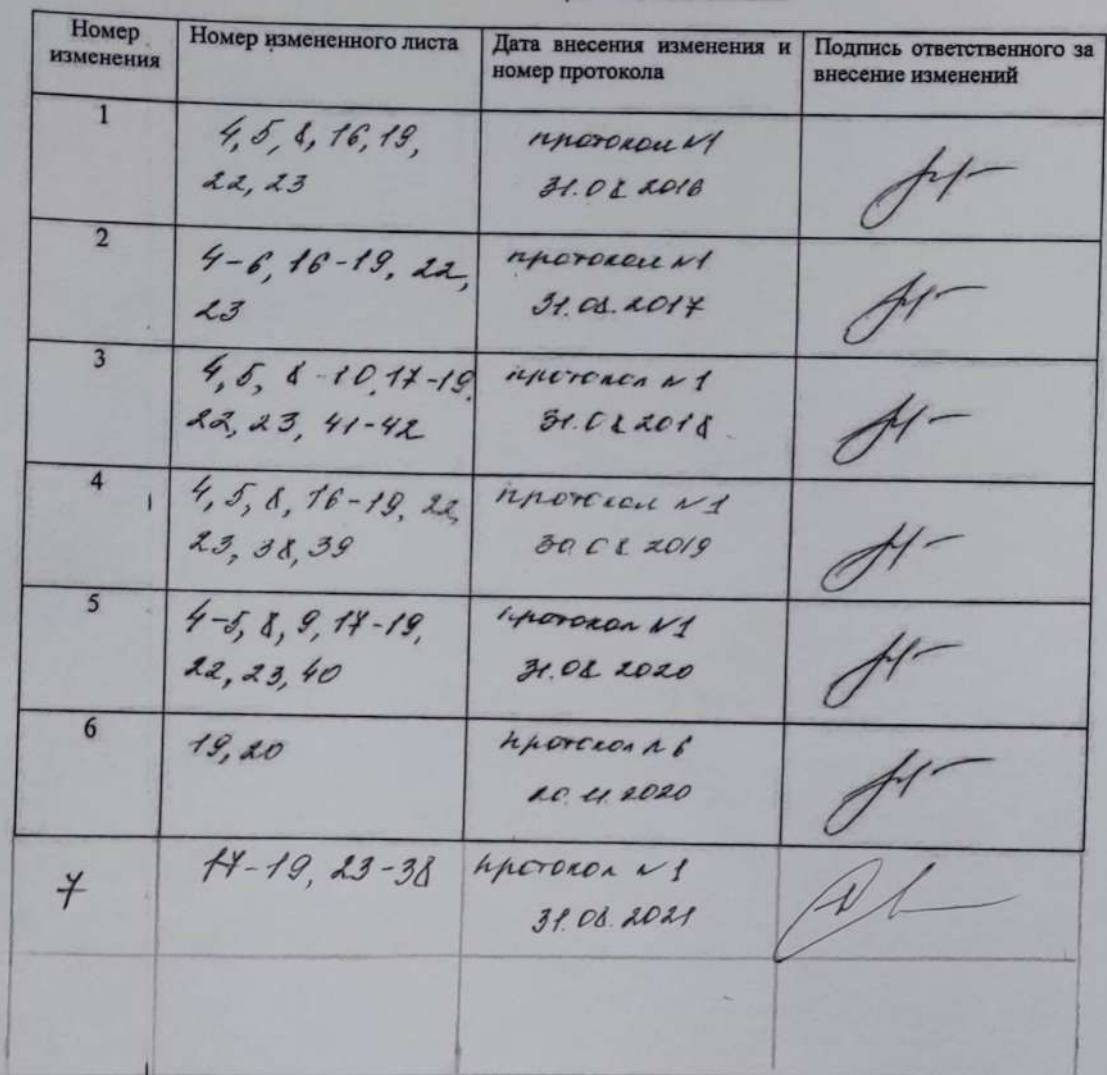 Номер изменения
Номер измененного листа
Дата внесения изменения и номер протокола
Подпись ответственного за внесение изменений
1
4, 5, 8, 16, 19,
22, 23
протокол №1
31.08.2016
2
4-6, 16-19, 22,
23
протокол №1
31.08.2017
3
4, 5, 8-10, 17-19,
22, 23, 41-42
протокол №1
31.08.2018
4
4, 5, 8, 16-19, 22,
23, 38, 39
протокол №1
30.08.2019
5
4-5, 8, 9, 17-19,
22, 23, 40
протокол №1
31.08.2020
6
19, 20
протокол №6
20.11.2020
7
17-19, 23-38
протокол №1
31.08.2021